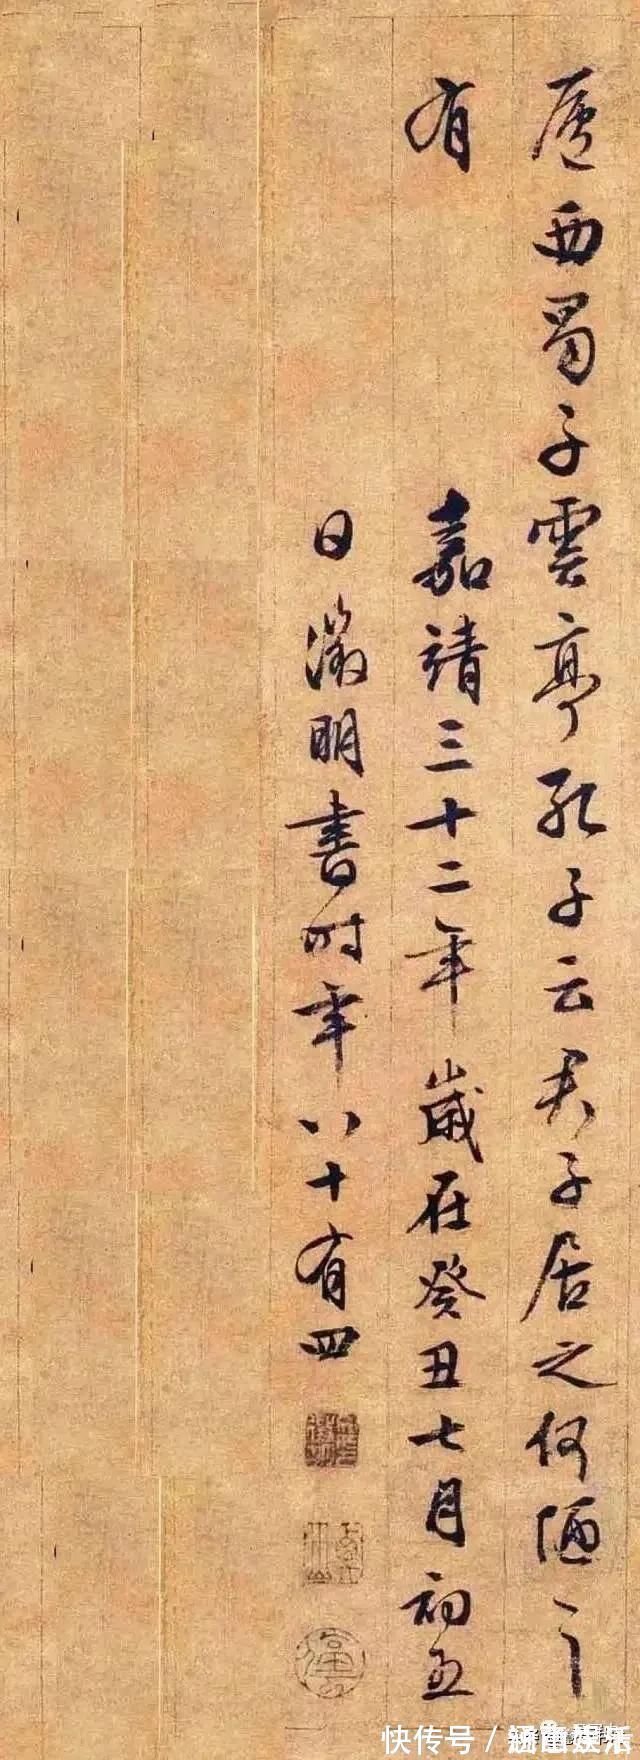 廬西蜀子雲亭孔子云君子居之何陋之
有
嘉靖三十二年歲在癸丑七月初五
日徵明書時年八十有四
快传号/